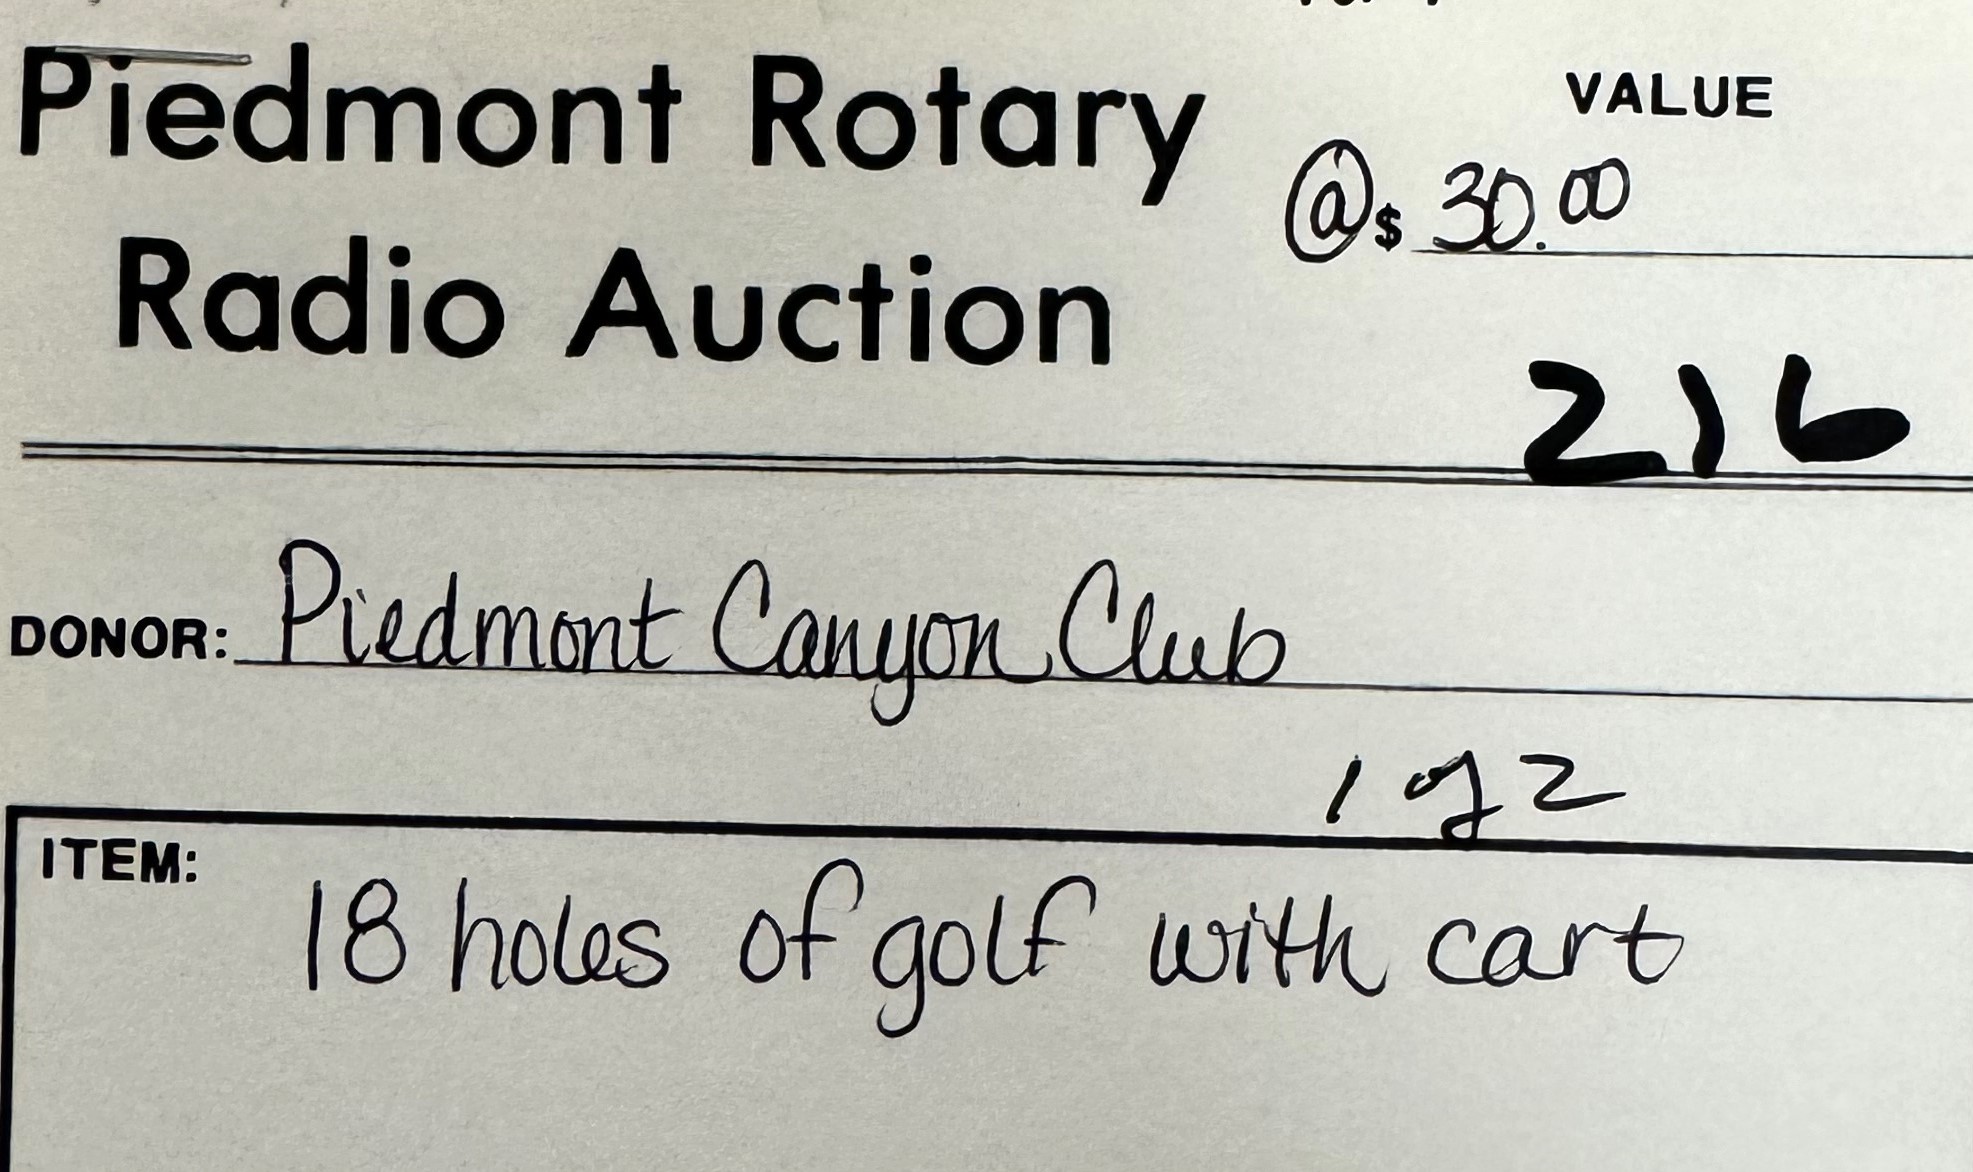 Piedmont Rotary
Radio Auction
VALUE
@ $ 30.00
216
DONOR: Piedmont Canyon Club
1 of 2
ITEM:
18 holes of golf with cart